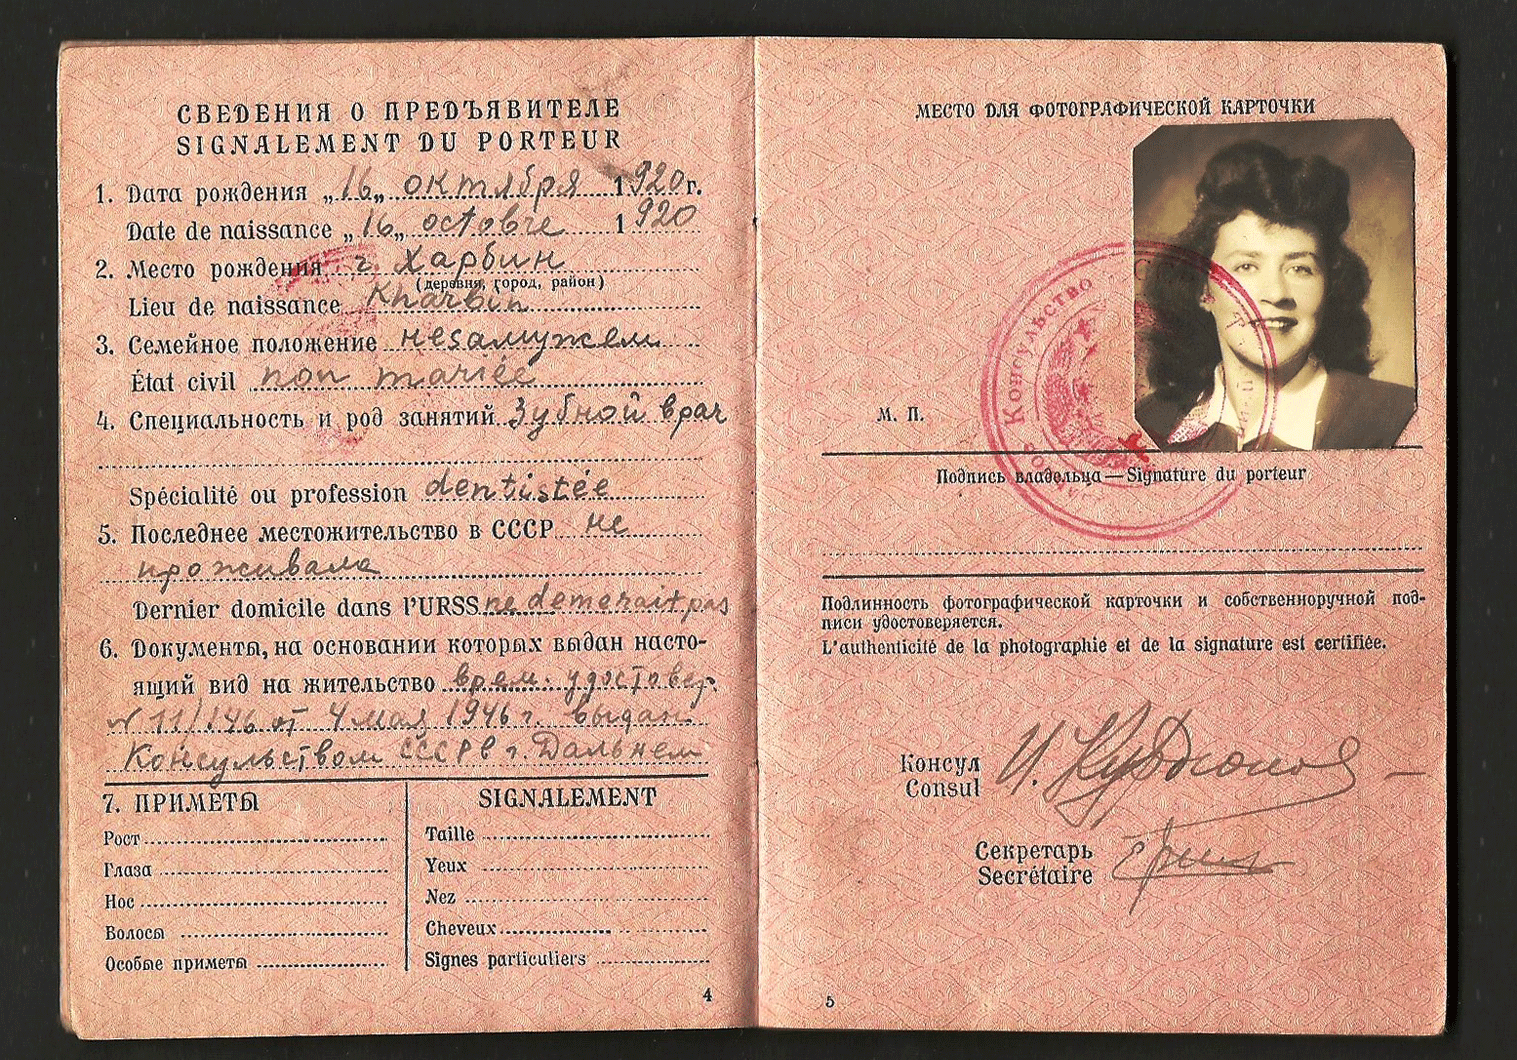 СВЕДЕНИЯ О ПРЕДЪЯВИТЕЛЕ
SIGNALEMENT DU PORTEUR
1. Дата рождения „16„ октября 1920 г.
Date de naissance „16„ octobre 1920
2. Место рождения г. Харбин
(деревня, город, район)
Lieu de naissance Kharbin
3. Семейное положение незамужем
État civil non mariée
4. Специальность и род занятий Зубной врач
Spécialité ou profession dentistée
5. Последнее местожительство в СССР не
проживала
Dernier domicile dans l'URSS ne demerait pas
6. Документы, на основании которых выдан насто-
ящий вид на жительство врем. удостовер.
N 11/146 от 4 мая 1946 г. выдан
Консульством СССР в г. Дальнем
7. ПРИМЕТЫ
Рост
Глаза
Нос
Волосы
Особые приметы
SIGNALEMENT
Taille
Yeux
Nez
Cheveux
Signes particuliers
4
МЕСТО ДЛЯ ФОТОГРАФИЧЕСКОЙ КАРТОЧКИ
Консульство СССР
М. П.
Подпись владельца — Signature du porteur
Подлинность фотографической карточки и собственноручной под-
писи удостоверяется.
L'authenticité de la photographie et de la signature est certifiée.
Консул
Consul
Секретарь
Secrétaire
5